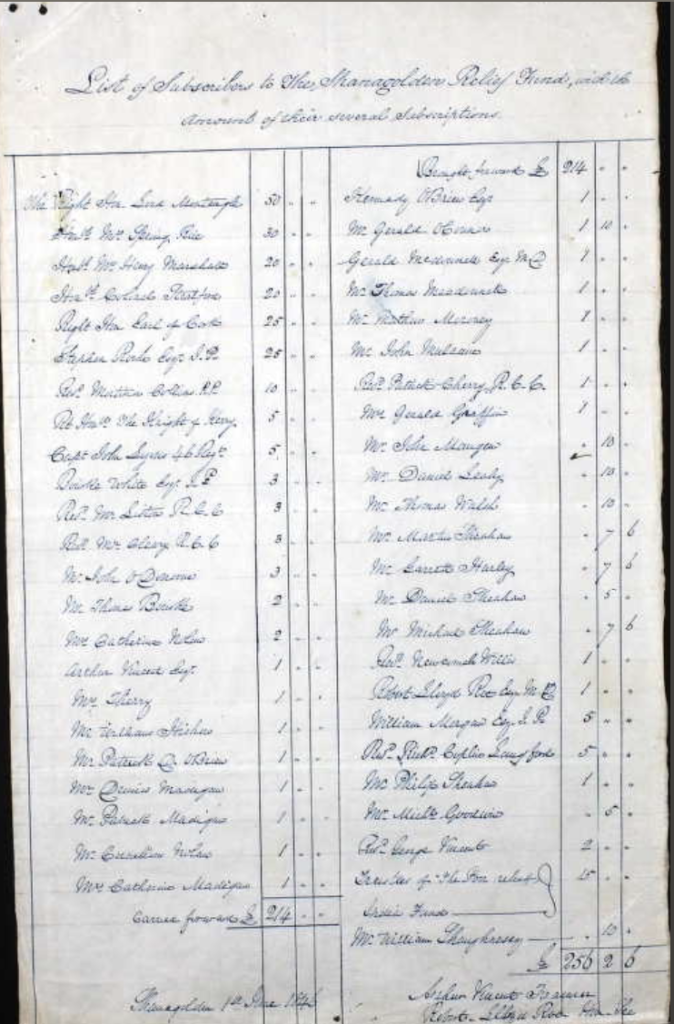 List of Subscribers to The Shanagolden Relief Fund, with the
amount of their several Subscriptions.
The Right Hon Lord Monteagle 50 " "
Honble Mrs Spring Rice 30 " "
Honble Mrs Henry Marshall 20 " "
Honble Colonel 20 " "
Right Hon Earl of Cork 25 " "
Stephen Esqr J.P. 25 " "
Revd Matthew Collins P.P. 10 " "
Rt Honble The Knight of Kerry 5 " "
Capt John 46 Regt 5 " "
Bourke White Esqr J.P. 3 " "
Revd Mr R.C.C 3 " "
Revd Mr Cleary R.C.C 3 " "
Mr John O'Donovan 3 " "
Mr Thomas Bourke 2 " "
Mrs Catherine Nolan 2 " "
Arthur Vincent Esqr 1 " "
Mrs Sherry 1 " "
Mr 1 " "
Mr Patrick D. O'Brien 1 " "
Mr Dennis Madigan 1 " "
Mr Patrick Madigan 1 " "
Mr Cornelius Nolan 1 " "
Mrs Catherine Madigan 1 " "
Carried forward £ 214 " "
Brought forward £ 214 " "
Kennedy O'Brien Esqr 1 " "
Mr Gerald O'Connor 1 10 "
Gerald Esqr M.D 1 " "
Mr Thomas 1 " "
Mr Mathew Moroney 1 " "
Mr John 1 " "
Revd Patrick Cherry R.C.C. 1 " "
Mr Gerald Griffin 1 " "
Mr John Mangan " 10 "
Mr Daniel Leahy " 10 "
Mr Thomas Walsh " 10 "
Mr Martin Sheahan " 7 6
Mr Garrett Hurley " 7 6
Mr Daniel Sheahan " 5 "
Mr Michael Sheahan " 7 6
Revd Newcomb Willis 1 " "
Robert Lloyd Roe Esqr M.D 1 " "
William Morgan Esqr J.P. 5 " "
Revd Langford 5 " "
Mr Philip Sheahan 1 " "
Mr Michl Goodwin " 5 "
Revd George Vincent 2 " "
Trustees of The for relief 15 " "
India Fund
Mr William Shaughnessy " 10 "
£ 256 2 6
Shanagolden 1st June 1846
Arthur Vincent Treasurer
Robert Lloyd Roe Hon Sec